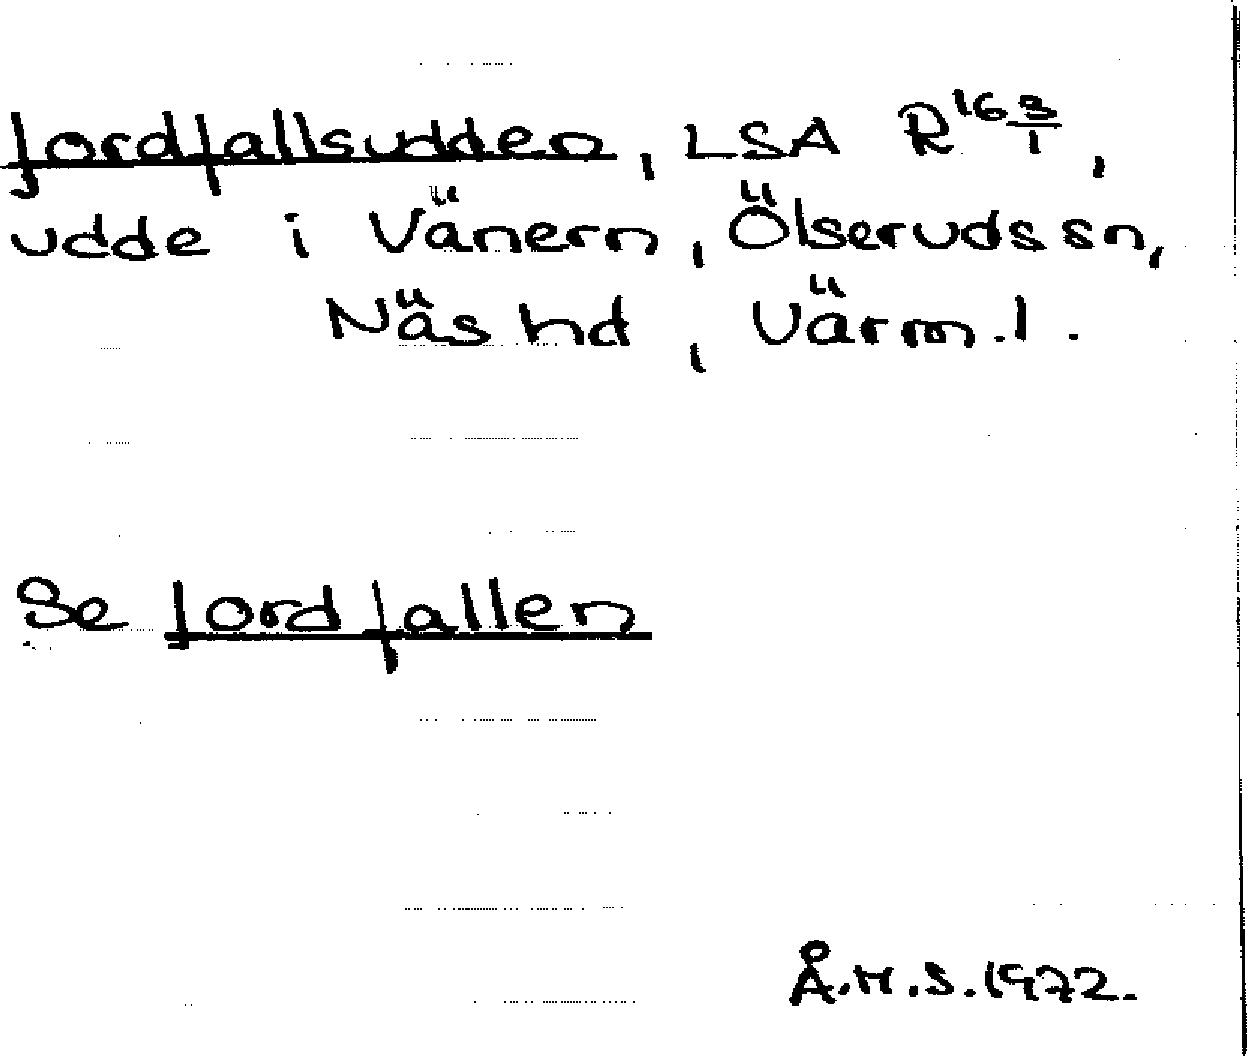 Jordfallsudden, LSA R 16 3/1,
udde i Vänern, Ölseruds sn,
Näs hd, Värm.l.
Se Jordfallen
Å.H.S.1972.